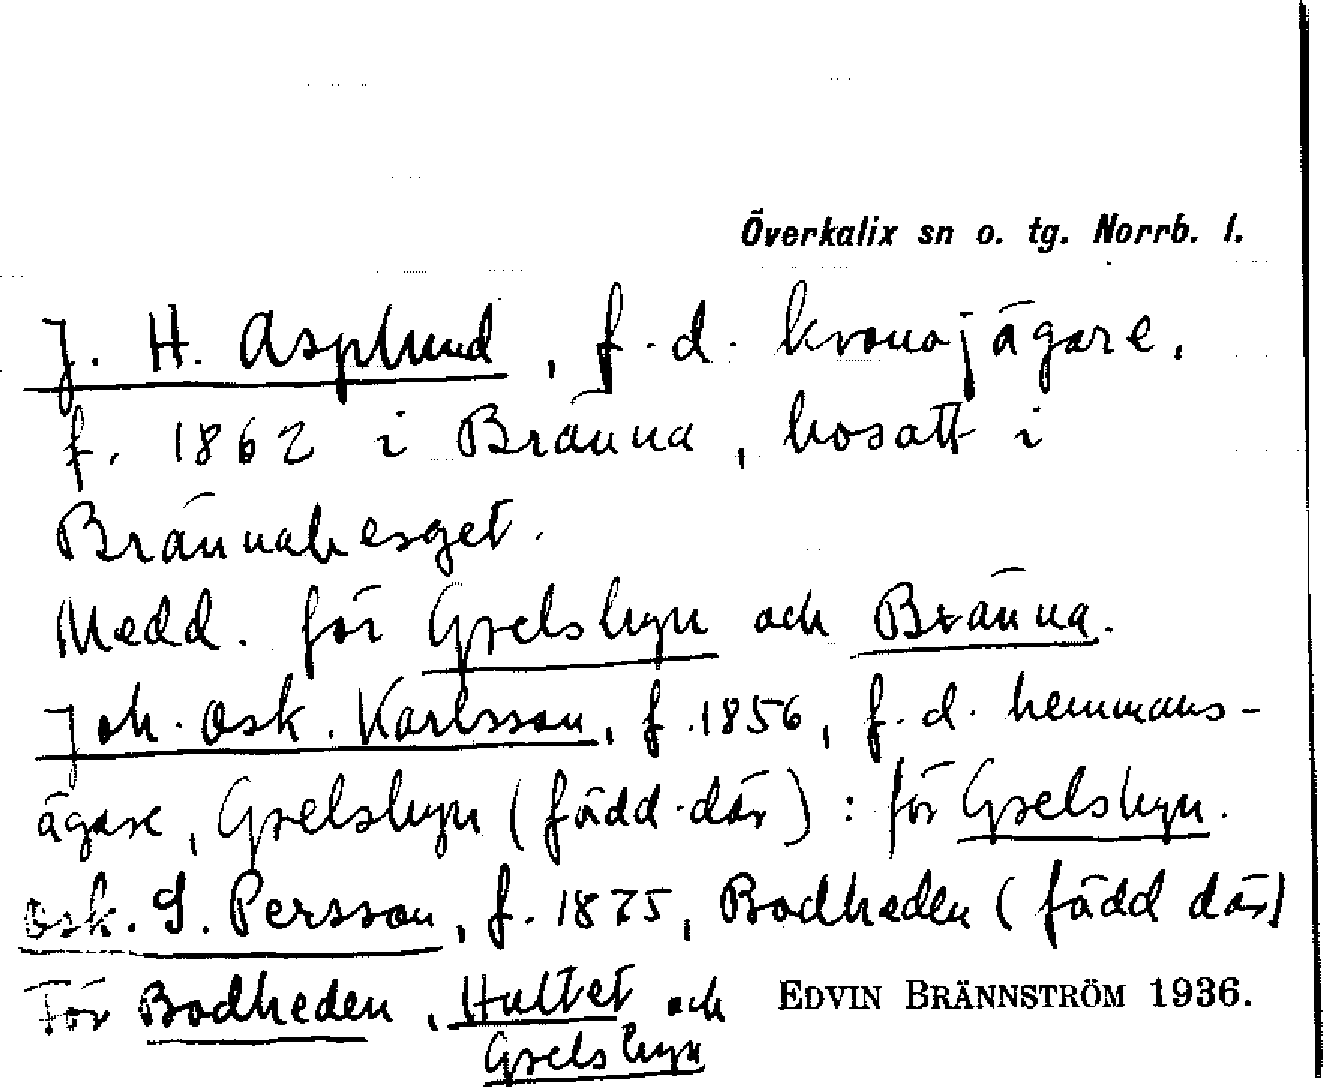 Överkalix sn o. tg. Norrb. l.
J. H. Asplund, f.d. kronojägare,
f. 1862 i Bränna, bosatt i
Brännaberget.
Medd. för Grelsbyn och Bränna.
Joh. Osk. Karlsson, f. 1856, f.d. hemmans-
ägare, Grelsbyn (född där): för Grelsbyn.
Osk. S. Persson, f. 1875, Bodheden (född där)
För Bodheden, Hultet och
Grelsbyn
EDVIN BRÄNNSTRÖM 1936.